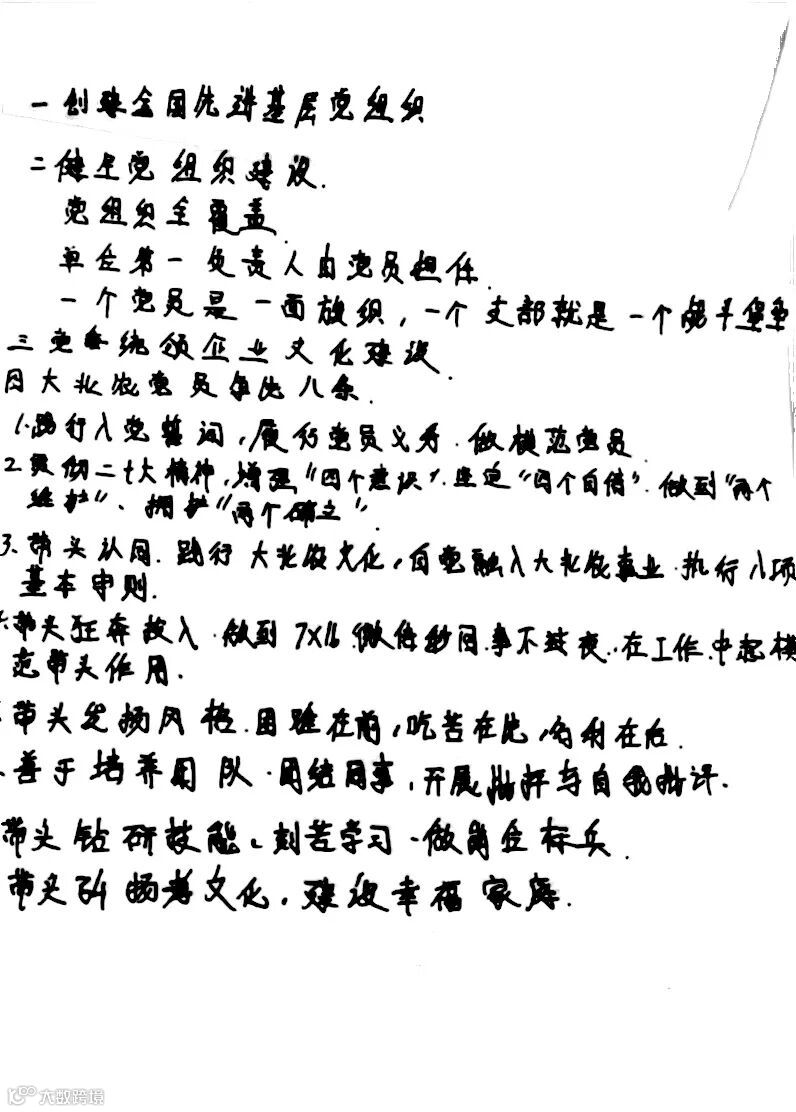 一 创建全国先进基层党组织
二 健全党组织建设.
党组织全覆盖
单位第一负责人由党员担任.
一个党员是一面旗织,一个支部就是一个战斗堡垒
三 党委统领企业文化建设.
四 大北农党员 八条.
1.践行入党誓词,履行党员义务.做模范党员
2.贯彻二十大精神,增强"四个意识".坚定"四个自信".做到"两个
维护"、拥护"两个确立".
3.带头认同.践行大北农文化,自觉融入大北农事业.执行八项
基本守则.
带头狂奔投入.做到7×16.微信秒回.事不过夜.在工作中起模
范带头作用.
带头发扬风格.困难在前,吃苦在先,名利在后.
善于培养团队.团结同事,开展批评与自我批评.
带头钻研技能、刻苦学习.做岗位标兵.
带头弘扬孝文化.建设幸福家庭.
大数跨境